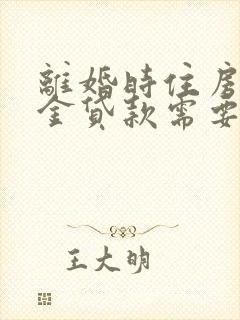 離婚時住房
金貸款需要
王大明